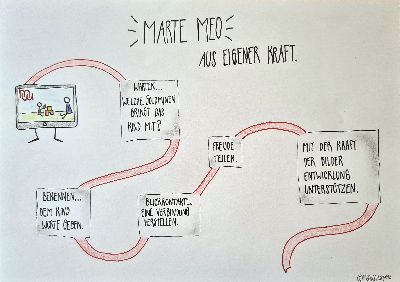 MARTE MEO
AUS EIGENER KRAFT.
WARTEN...
WELCHE GOLDMINEN
BRINGT DAS
KIND MIT?
BENENNEN...
DEM KIND
WORTE GEBEN.
BLICKKONTAKT...
EINE VERBINDUNG
HERSTELLEN.
FREUDE
TEILEN.
MIT DER KRAFT
DER BILDER
ENTWICKLUNG
UNTERSTÜTZEN.